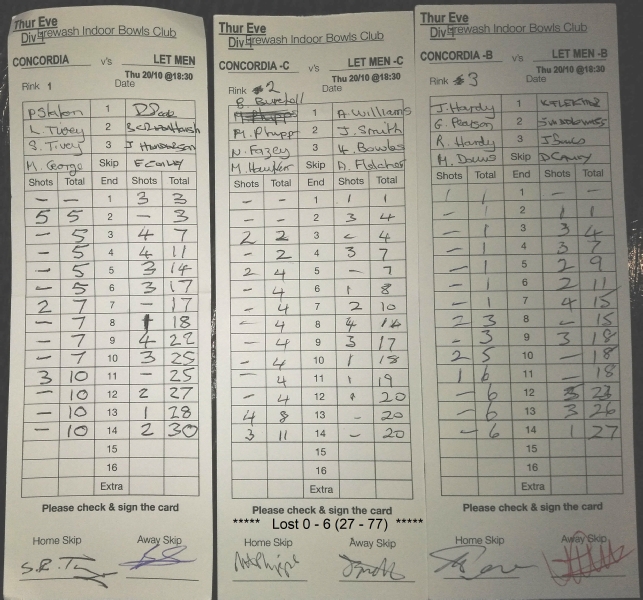 Thur Eve
Div 4 Erewash Indoor Bowls Club
CONCORDIA v's LET MEN
Thu 20/10 @18:30
Rink 1 Date
1
L. Tivey 2
S. Tivey 3 J Henderson
M. George Skip
Shots Total End Shots Total
- - 1 3 3
5 5 2 - 3
- 5 3 4 7
- 5 4 4 11
- 5 5 3 14
- 5 6 3 17
2 7 7 - 17
- 7 8 1 18
- 7 9 4 22
- 7 10 3 25
3 10 11 - 25
- 10 12 2 27
- 10 13 1 28
- 10 14 2 30
15
16
Extra
Please check & sign the card
Home Skip Away Skip
Thur Eve
Div 4 Erewash Indoor Bowls Club
CONCORDIA -C v's LET MEN -C
Thu 20/10 @18:30
Rink 2 Date
B. Burchell
M. Phipps 1 A Williams
M. Phipp 2 J. Smith
N. Fazey 3 K. Bowles
M. Hawker Skip A. Fletcher
Shots Total End Shots Total
- - 1 1 1
- - 2 3 4
2 2 3 - 4
- 2 4 3 7
2 4 5 - 7
- 4 6 1 8
- 4 7 2 10
- 4 8 4 14
- 4 9 3 17
- 4 10 1 18
- 4 11 1 19
- 4 12 1 20
4 8 13 - 20
3 11 14 - 20
15
16
Extra
Please check & sign the card
***** Lost 0 - 6 (27 - 77) *****
Home Skip Away Skip
Thur Eve
Div 4 Erewash Indoor Bowls Club
CONCORDIA -B v's LET MEN -B
Thu 20/10 @18:30
Rink 3 Date
J. Hardy 1
G. Pearson 2
R. Hardy 3
M. Downs Skip
Shots Total End Shots Total
1 1 1 - -
- 1 2 1 1
- 1 3 3 4
- 1 4 3 7
- 1 5 2 9
- 1 6 2 11
- 1 7 4 15
2 3 8 - 15
- 3 9 3 18
2 5 10 - 18
1 6 11 - 18
- 6 12 5 23
- 6 13 3 26
- 6 14 1 27
15
16
Extra
Please check & sign the card
Home Skip Away Skip